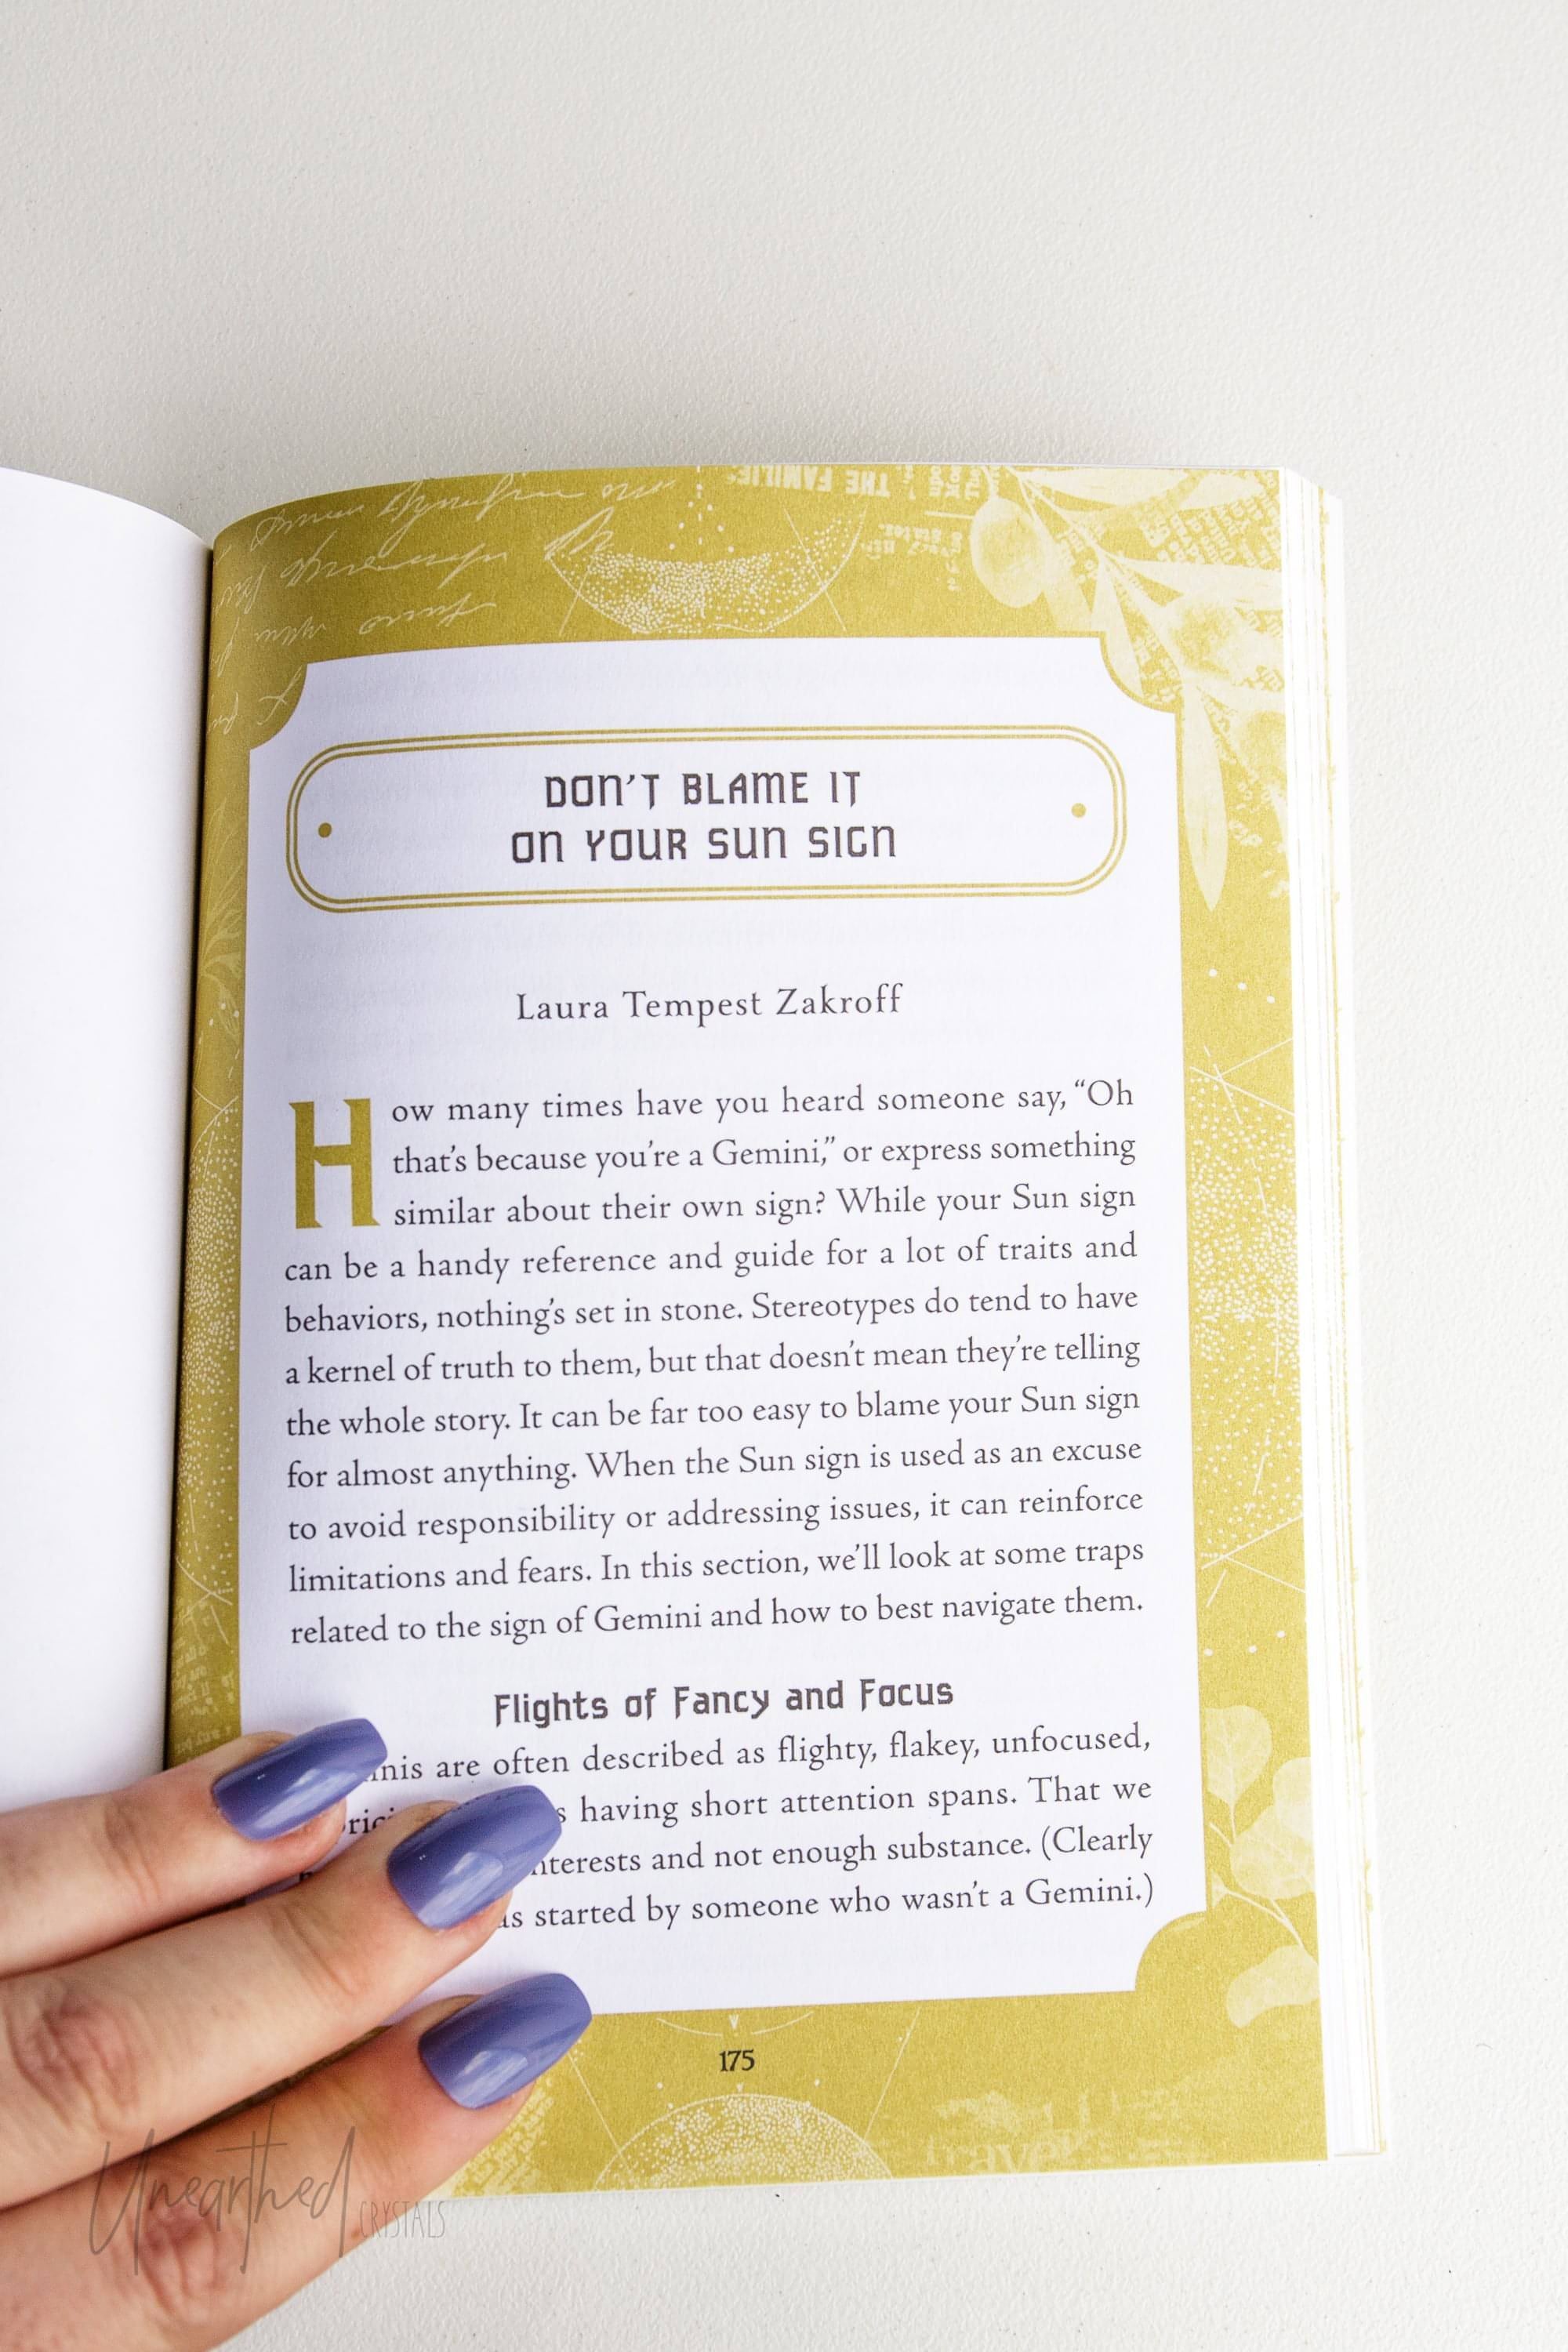 DON'T BLAME IT
ON YOUR SUN SIGN
Laura Tempest Zakroff
How many times have you heard someone say, “Oh
that's because you're a Gemini,” or express something
similar about their own sign? While your Sun sign
can be a handy reference and guide for a lot of traits and
behaviors, nothing's set in stone. Stereotypes do tend to have
a kernel of truth to them, but that doesn't mean they're telling
the whole story. It can be far too easy to blame your Sun sign
for almost anything. When the Sun sign is used as an excuse
to avoid responsibility or addressing issues, it can reinforce
limitations and fears. In this section, we'll look at some traps
related to the sign of Gemini and how to best navigate them.
Flights of Fancy and Focus
are often described as flighty, flakey, unfocused,
having short attention spans. That we
interests and not enough substance. (Clearly
started by someone who wasn't a Gemini.)
175
Unearthed CRYSTALS
THE FAMILIE
travel